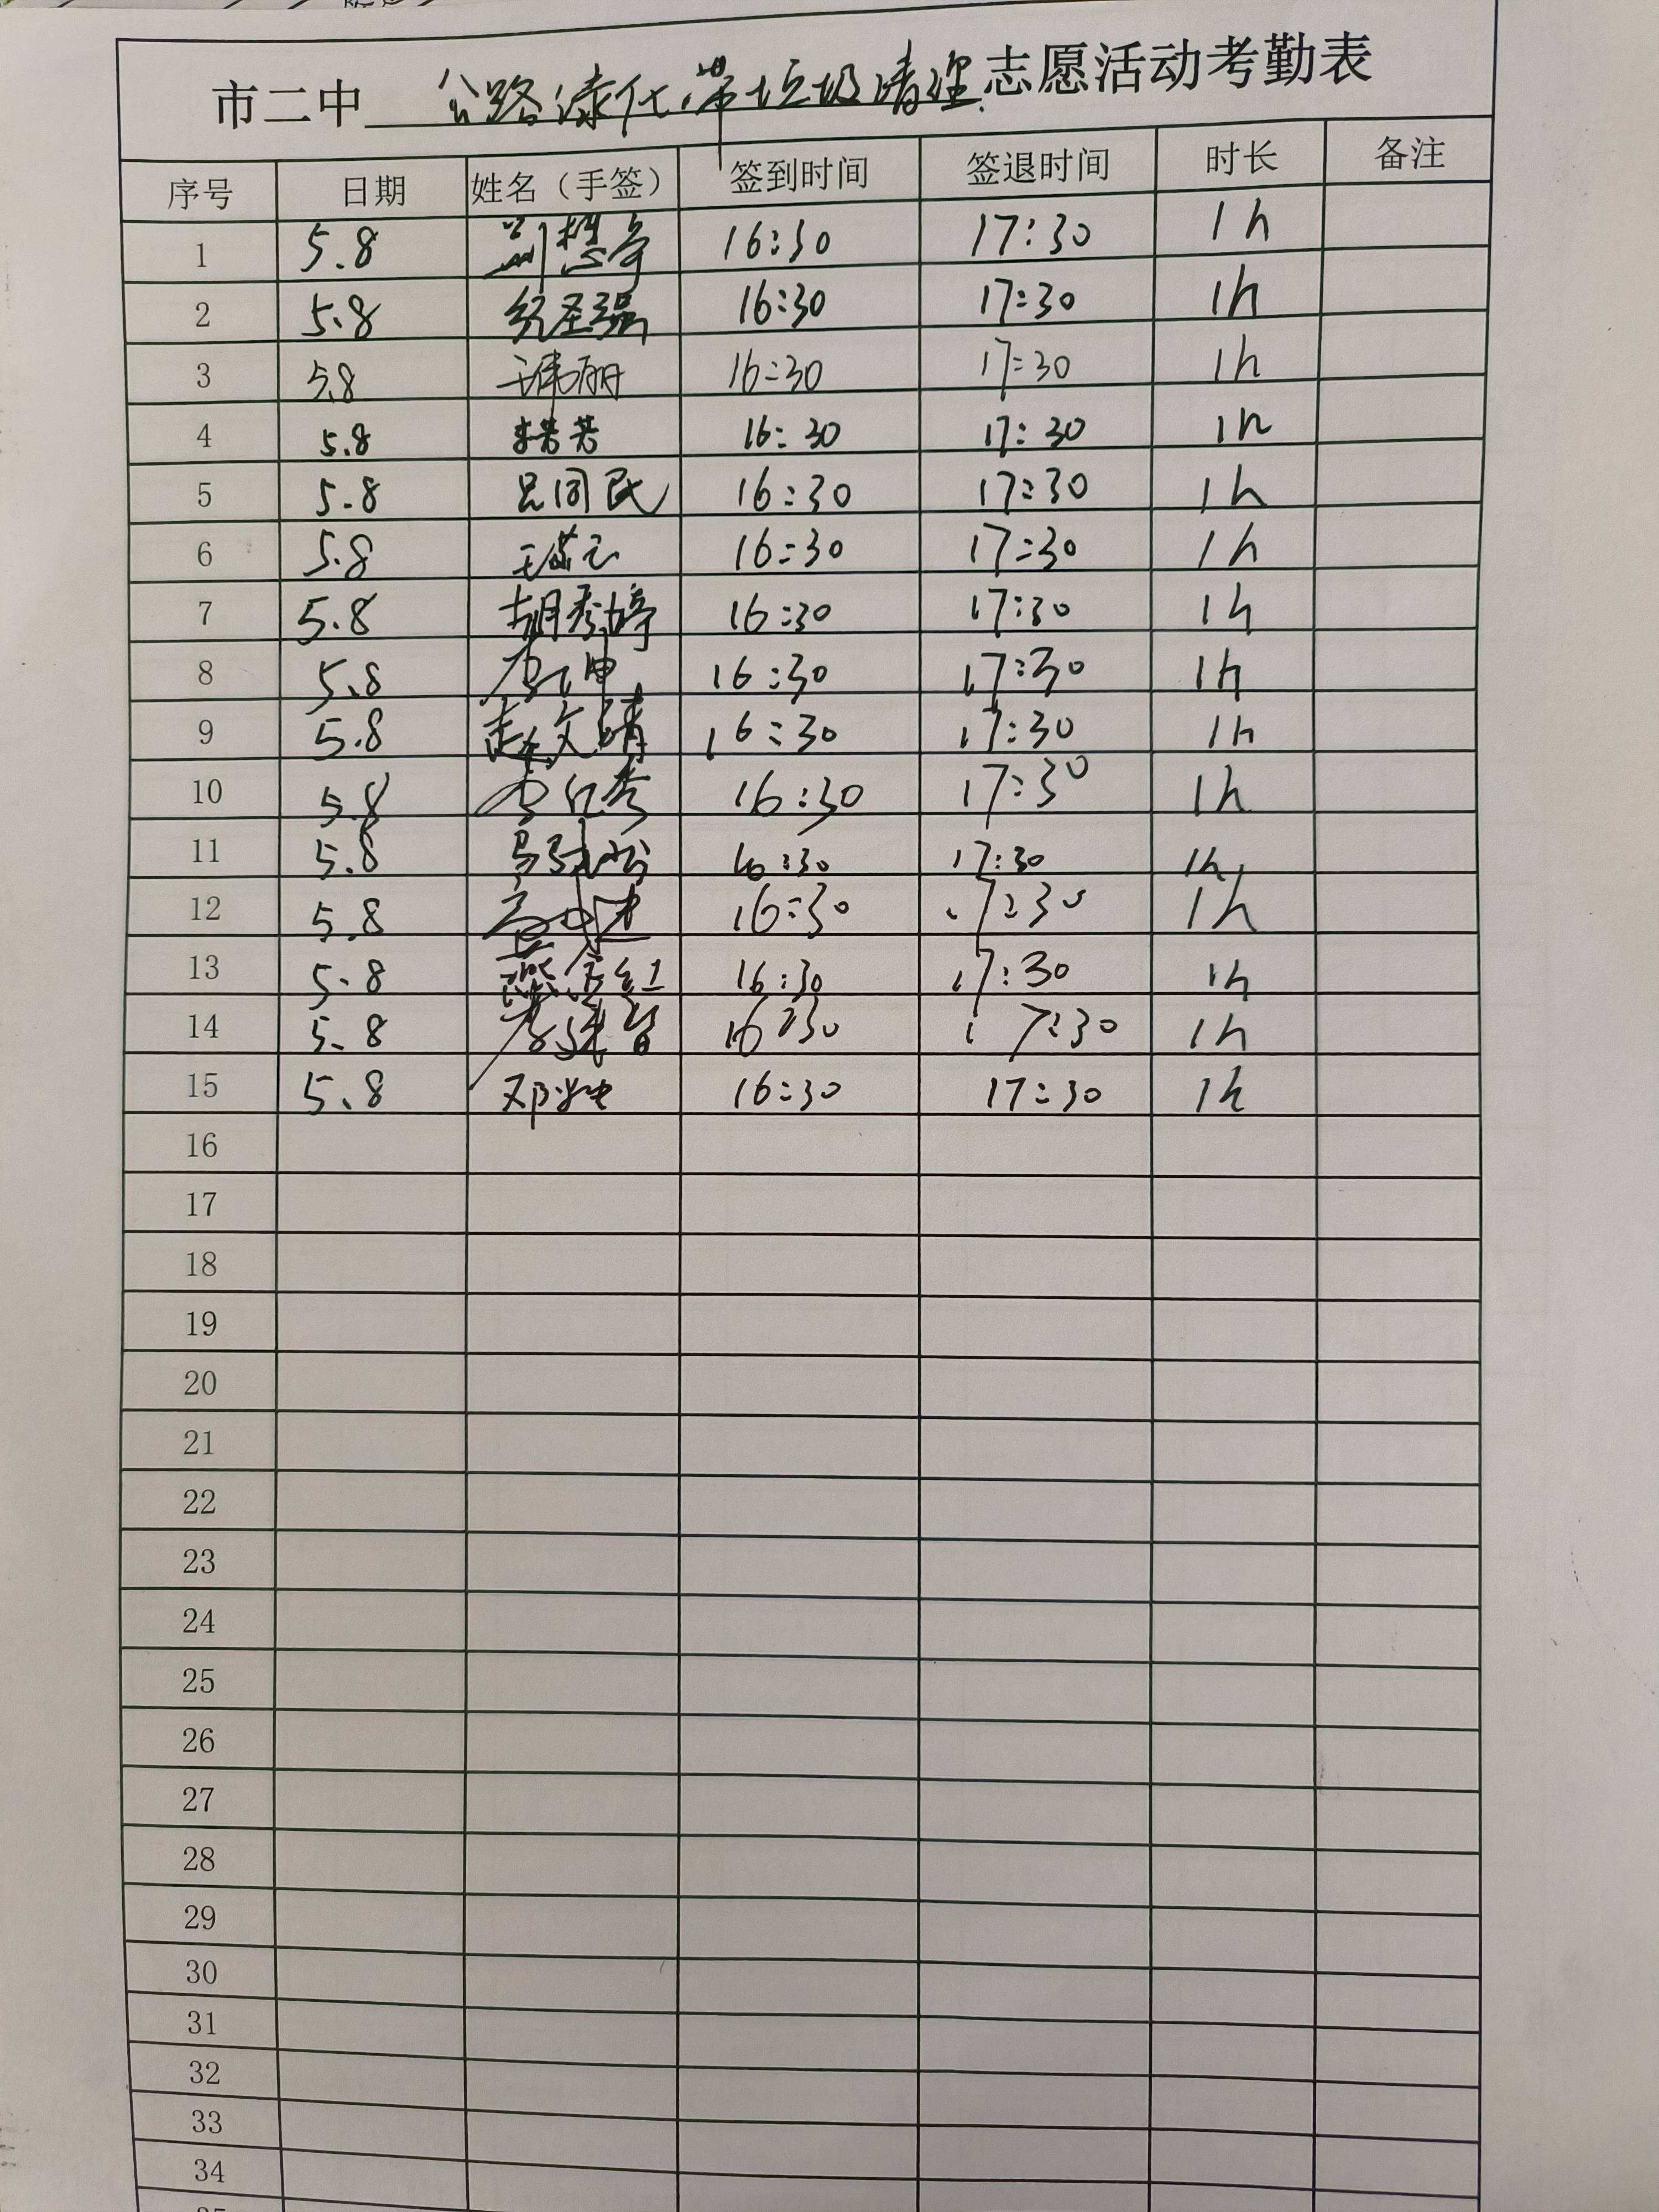 市二中 公路绿化带垃圾清理 志愿活动考勤表
序号 日期 姓名（手签） 签到时间 签退时间 时长 备注
1 5.8 16:30 17:30 1h
2 5.8 16:30 17:30 1h
3 5.8 16:30 17:30 1h
4 5.8 16:30 17:30 1h
5 5.8 16:30 17:30 1h
6 5.8 16:30 17:30 1h
7 5.8 胡秀婷 16:30 17:30 1h
8 5.8 16:30 17:30 1h
9 5.8 赵文靖 16:30 17:30 1h
10 5.8 16:30 17:30 1h
11 5.8 16:30 17:30 1h
12 5.8 16:30 17:30 1h
13 5.8 16:30 17:30 1h
14 5.8 16:30 17:30 1h
15 5.8 16:30 17:30 1h
16
17
18
19
20
21
22
23
24
25
26
27
28
29
30
31
32
33
34